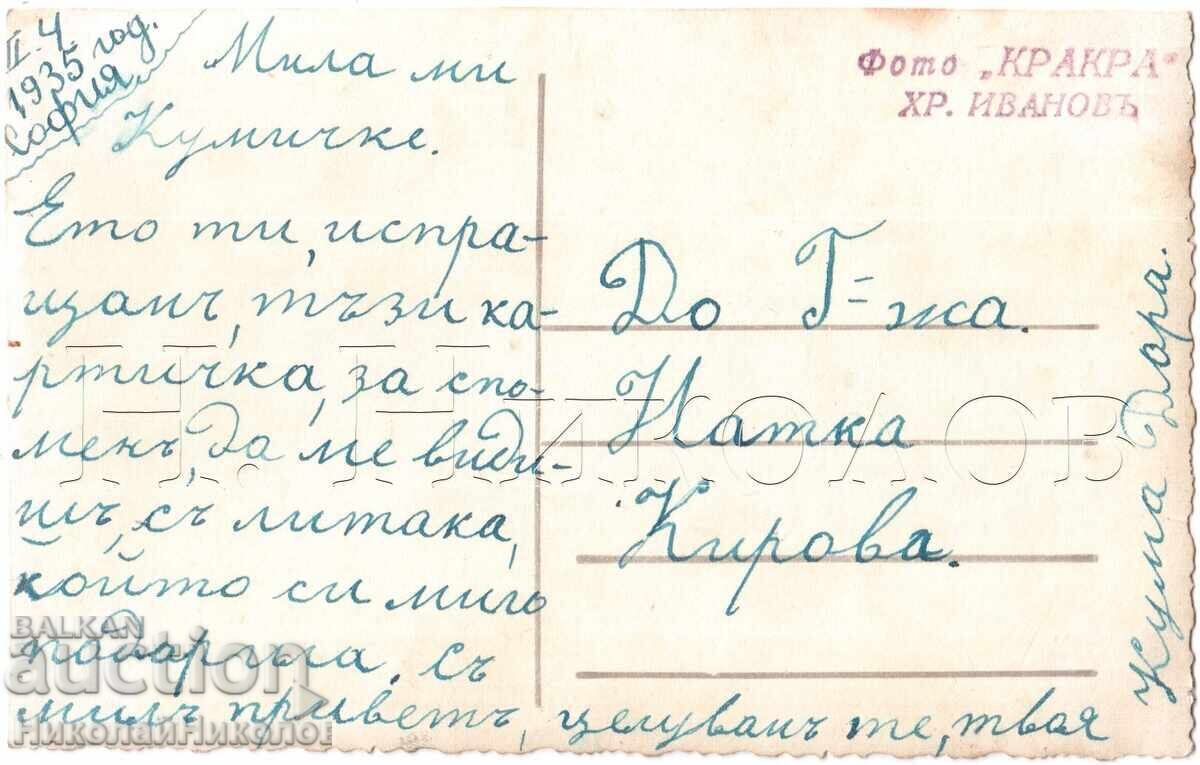 II-4
1935 год.
София
Мила ми
Кумичке.
Ето ти, испра-
щанъ, тъзи ка-
ртичка, за спо-
менъ, да ме види-
шъ, съ литака,
който си миго
подаръла. съ
милъ приветъ, целуванъ те, твоя
Кума Дора.
Фото „КРАКРА“
ХР. ИВАНОВЪ
До Г-жа.
Натка
Кирова.
Н. НИКОЛОВ
BALKAN
auction
НиколайНиколов